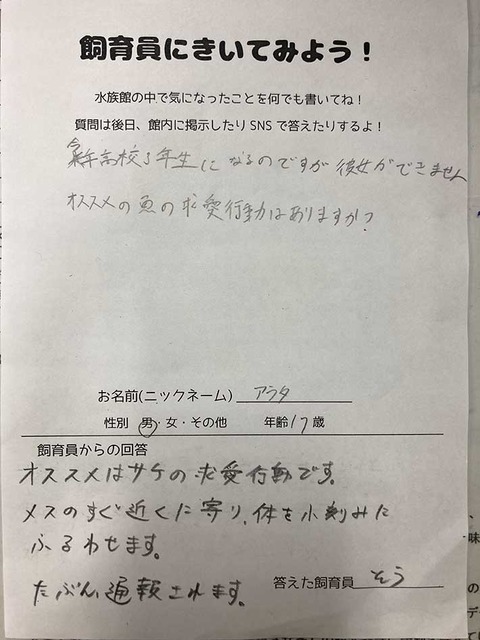 飼育員にきいてみよう！
水族館の中で気になったことを何でも書いてね！
質問は後日、館内に掲示したりSNSで答えたりするよ！
高校3年生になるのですが彼女ができません
オススメの魚の求愛行動はありますか?
お名前(ニックネーム) アラタ
性別 男・女・その他 年齢 17 歳
飼育員からの回答
オススメはサケの求愛行動です。
メスのすぐ近くに寄り、体を小刻みに
ふるわせます。
たぶん通報されます。
答えた飼育員 そう
味
の
デ